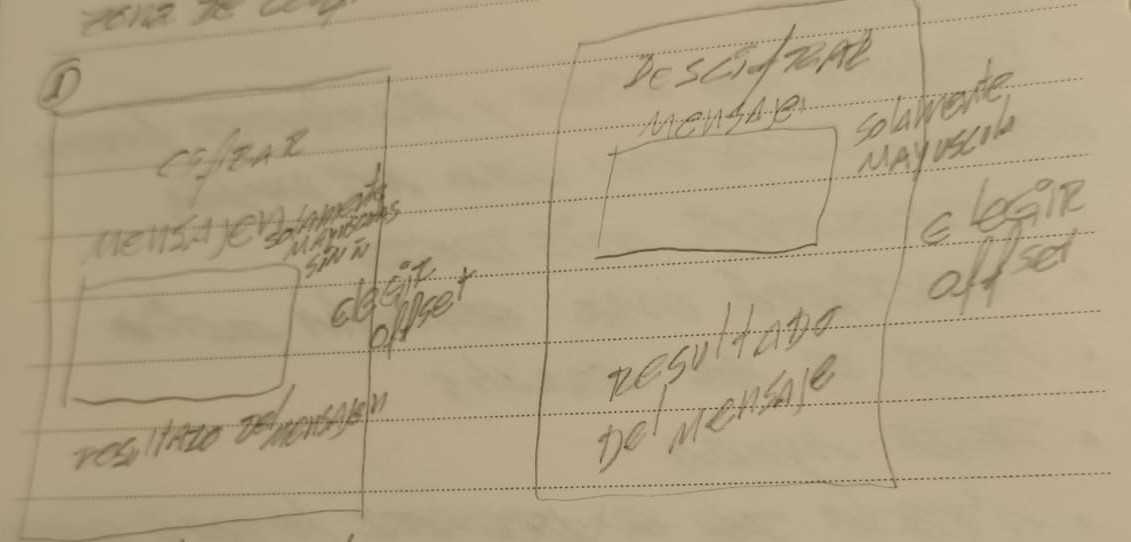 ZONA DE
1
CIFRAR
MENSAJE
SOLAMENTE
MAYUSCULAS
SIN Ñ
ELEGIR
OFFSET
RESULTADO DEL MENSAJE
DESCIFRAR
MENSAJE
SOLAMENTE
MAYUSCULA
ELEGIR
OFFSET
RESULTADO
DEL MENSAJE